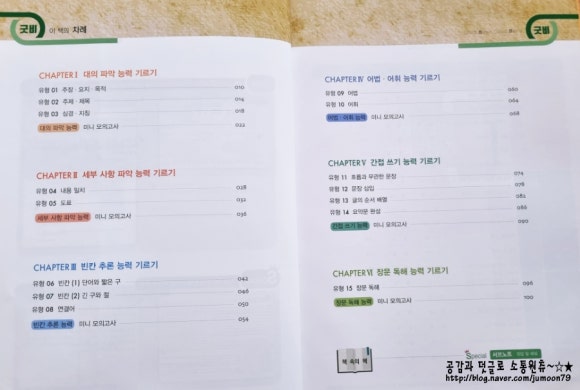 굿비
이 책의 차례
CHAPTER I 대의 파악 능력 기르기
유형 01 주장·요지·목적 010
유형 02 주제·제목 014
유형 03 심경·지칭 018
대의 파악 능력 미니 모의고사 022
CHAPTER II 세부 사항 파악 능력 기르기
유형 04 내용 일치 028
유형 05 도표 032
세부 사항 파악 능력 미니 모의고사 036
CHAPTER III 빈칸 추론 능력 기르기
유형 06 빈칸 (1) 단어와 짧은 구 042
유형 07 빈칸 (2) 긴 구와 절 046
유형 08 연결어 050
빈칸 추론 능력 미니 모의고사 054
굿비
CHAPTER IV 어법·어휘 능력 기르기
유형 09 어법 060
유형 10 어휘 064
어법·어휘 능력 미니 모의고사 068
CHAPTER V 간접 쓰기 능력 기르기
유형 11 흐름과 무관한 문장 074
유형 12 문장 삽입 078
유형 13 글의 순서 배열 082
유형 14 요약문 완성 086
간접 쓰기 능력 미니 모의고사 090
CHAPTER VI 장문 독해 능력 기르기
유형 15 장문 독해 096
장문 독해 능력 미니 모의고사 100
책 속의 책
Special 서브노트
공감과 덧글로 소통원츄~☆★
http://blog.naver.com/jumoon79